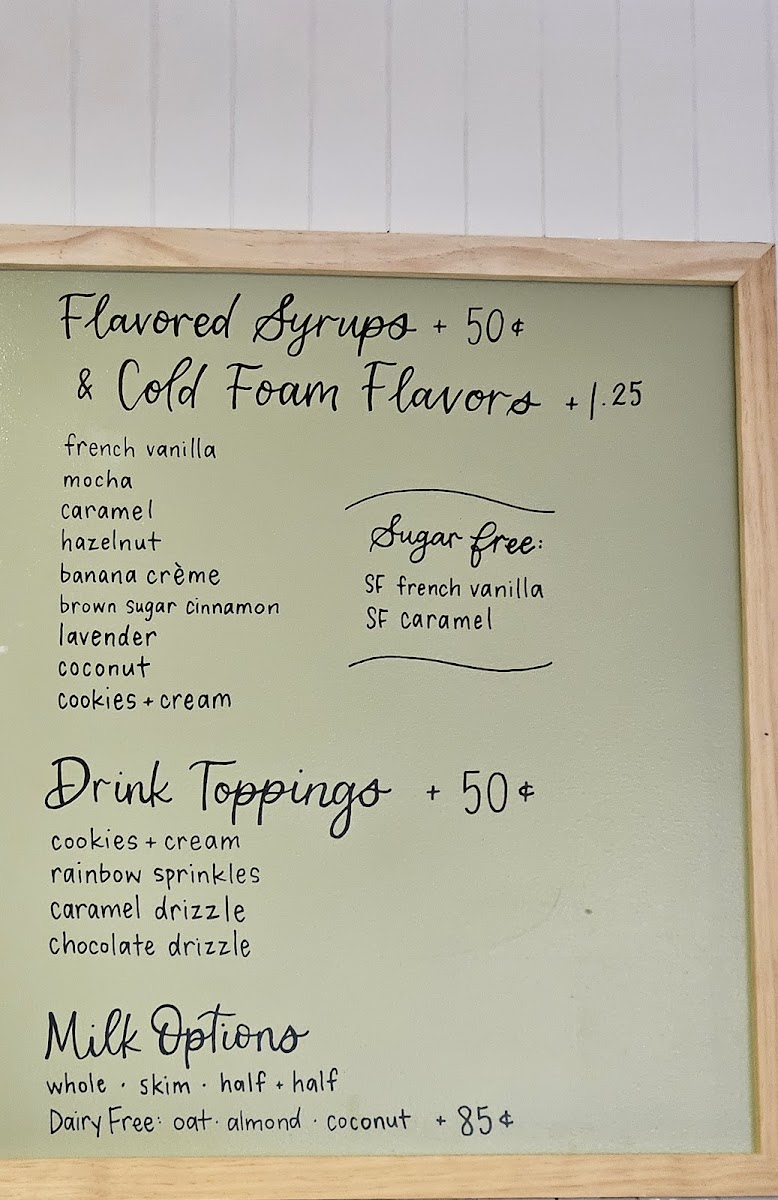 Flavored Syrups + 50¢
& Cold Foam Flavors + 1.25
french vanilla
mocha
caramel
hazelnut
banana crème
brown sugar cinnamon
lavender
coconut
cookies + cream
Sugar free:
SF french vanilla
SF caramel
Drink Toppings + 50¢
cookies + cream
rainbow sprinkles
caramel drizzle
chocolate drizzle
Milk Options
whole · skim · half + half
Dairy Free: oat · almond · coconut + 85¢